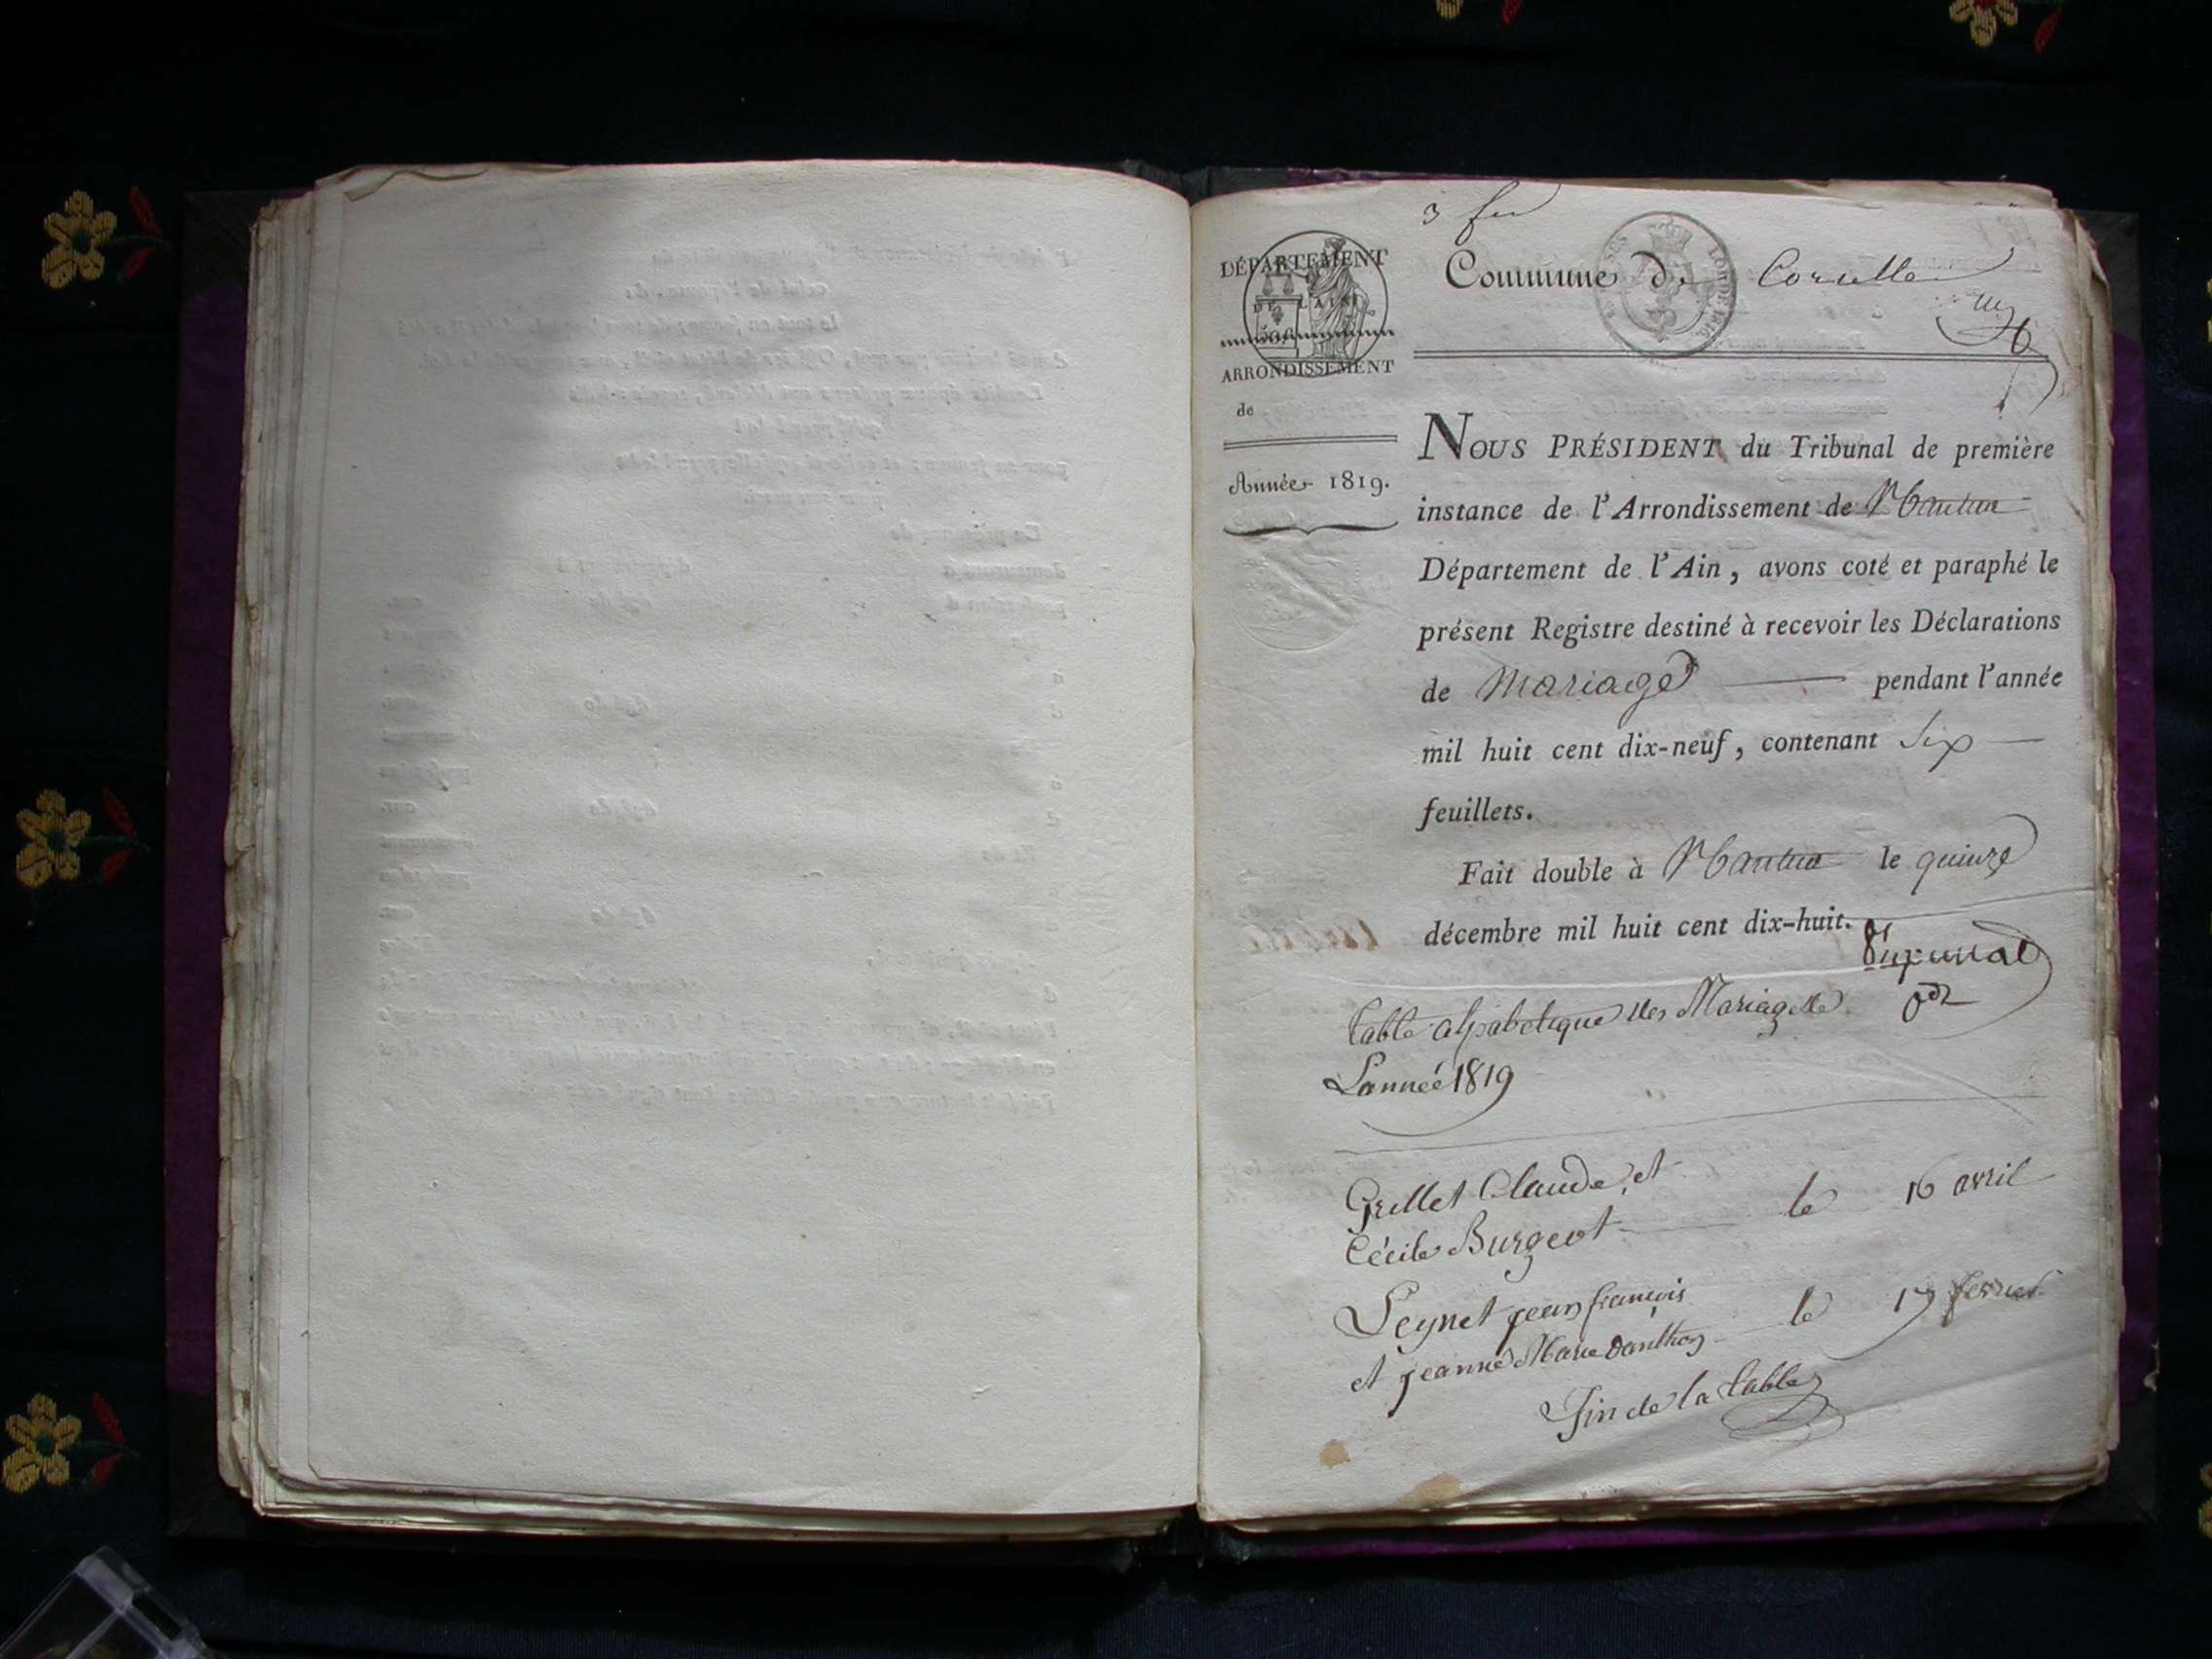 3 feu
DÉPARTEMENT
DE L'AIN
ARRONDISSEMENT
de
Année 1819.
Commune de Corcelle
NOUS PRÉSIDENT du Tribunal de première
instance de l'Arrondissement de Nantua
Département de l'Ain, avons coté et paraphé le
présent Registre destiné à recevoir les Déclarations
de Mariage pendant l'année
mil huit cent dix-neuf, contenant Six
feuillets.
Fait double à Nantua le quinze
décembre mil huit cent dix-huit.
Table alpabetique des Mariage de
L'année 1819
Grillet Claude, et
Cécile Burgeot le 16 avril
Peynet jean françois
et jeanne Marie danthon le 17 fevrier
Fin de la table